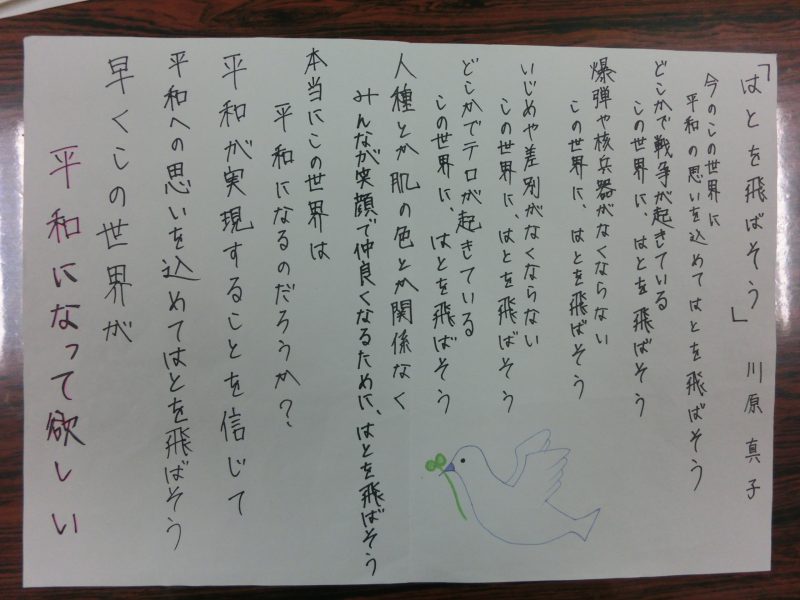 「はとを飛ばそう」 川原 真子
今のこの世界に
平和の思いを込めてはとを飛ばそう
どこかで戦争が起きている
この世界に、はとを飛ばそう
爆弾や核兵器がなくならない
この世界に、はとを飛ばそう
いじめや差別がなくならない
この世界に、はとを飛ばそう
どこかでテロが起きている
この世界に、はとを飛ばそう
人種とか肌の色とか関係なく
みんなが笑顔で仲良くなるために、はとを飛ばそう
本当にこの世界は
平和になるのだろうか？
平和が実現することを信じて
平和への思いを込めてはとを飛ばそう
早くこの世界が
平和になって欲しい